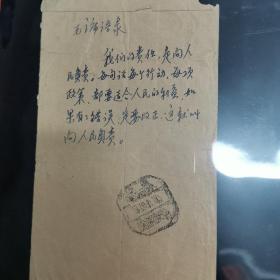 毛主席语录
我们的责任,是向人
民负责。每句话每个行动,每项
政策,都要适合人民的利益,如
果有了错误,定要改正,这就叫
向人民负责。